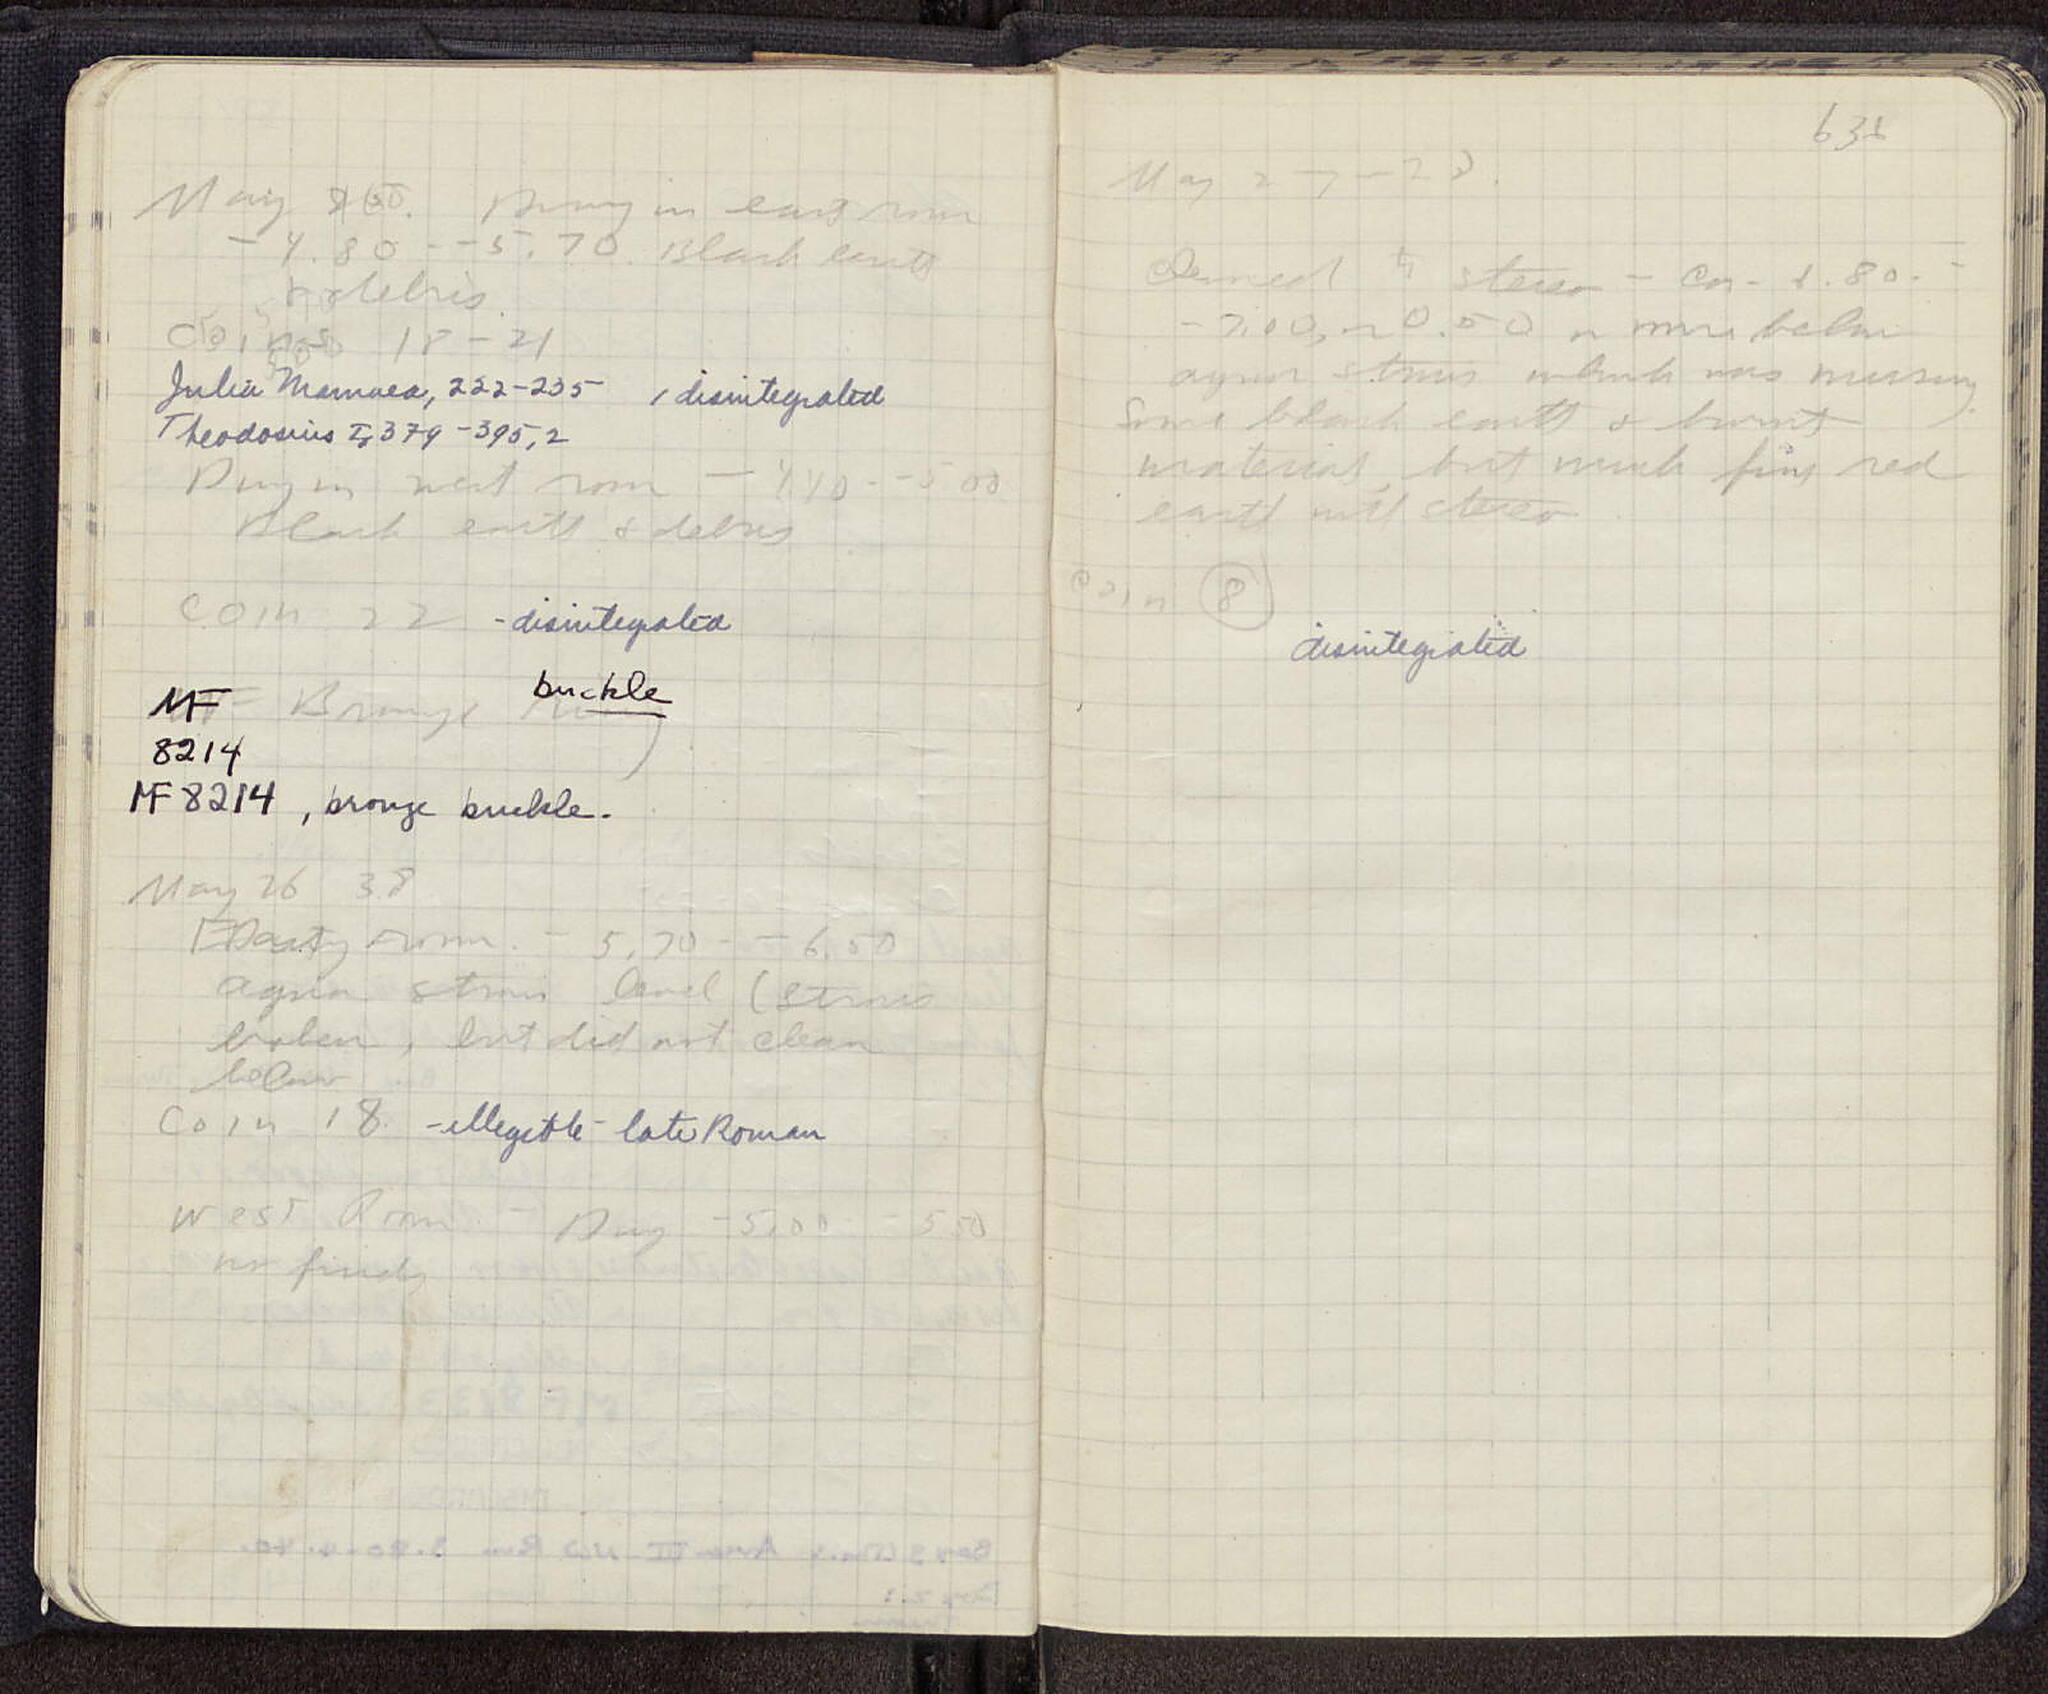 May
Dug in east room
-4.80 - -5.70. Black earth
& debris.
Coins 18-21
Julia Mamaea, 222-235 , disintegrated
Theodosius I, 379-395, 2
Dug in west room - 4.40 - -5.00
Black earth & debris
Coin 22 - disintegrated
MF Bronze buckle
8214
MF 8214, bronze buckle.
May 26 38
East room. - 5.70 - - 6.50
level (
broken, but did not clean
below
Coin 18. - illegible - late Roman
West Room - Dug -5.00 - -5.50
no finds
631
May 27-
Cleaned to stereo - Ca. -
-7.00, or 0.50 or more below
which was missing.
Some black earth & burnt
material, but much fine red
earth with stereo.
Coin 8
disintegrated